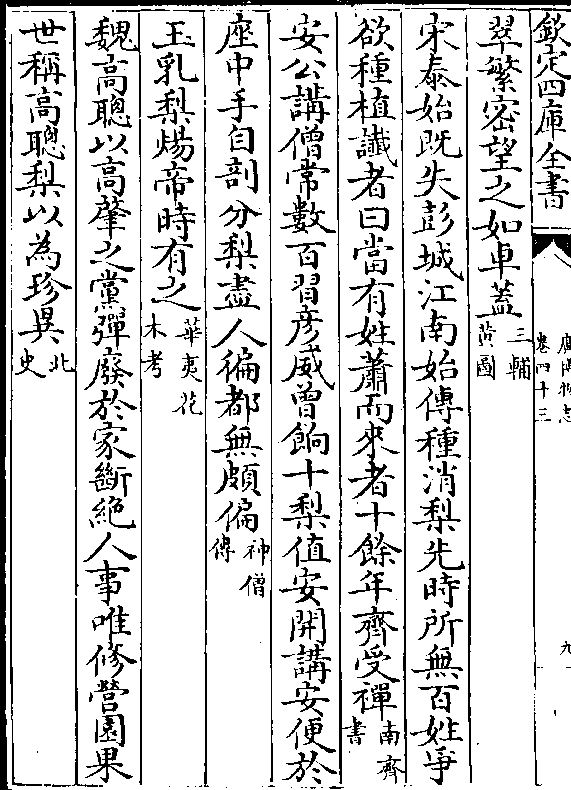 欽定四庫全書
廣博物志
卷四十三
九
翠繁密望之如車蓋三輔黃圖
宋泰始既失彭城江南始傳種消梨先時所無百姓爭
欲種植讖者曰當有姓蕭而來者十餘年齊受禪南齊書
安公講僧常數百習彦威曾餉十梨值安開講安便於
座中手自剖分梨盡人徧都無頗偏神僧傳
玉乳梨煬帝時有之華夷花木考
魏高聰以高肇之黨彈廢於家斷絶人事唯修營園果
世稱高聰梨以為珍異北史